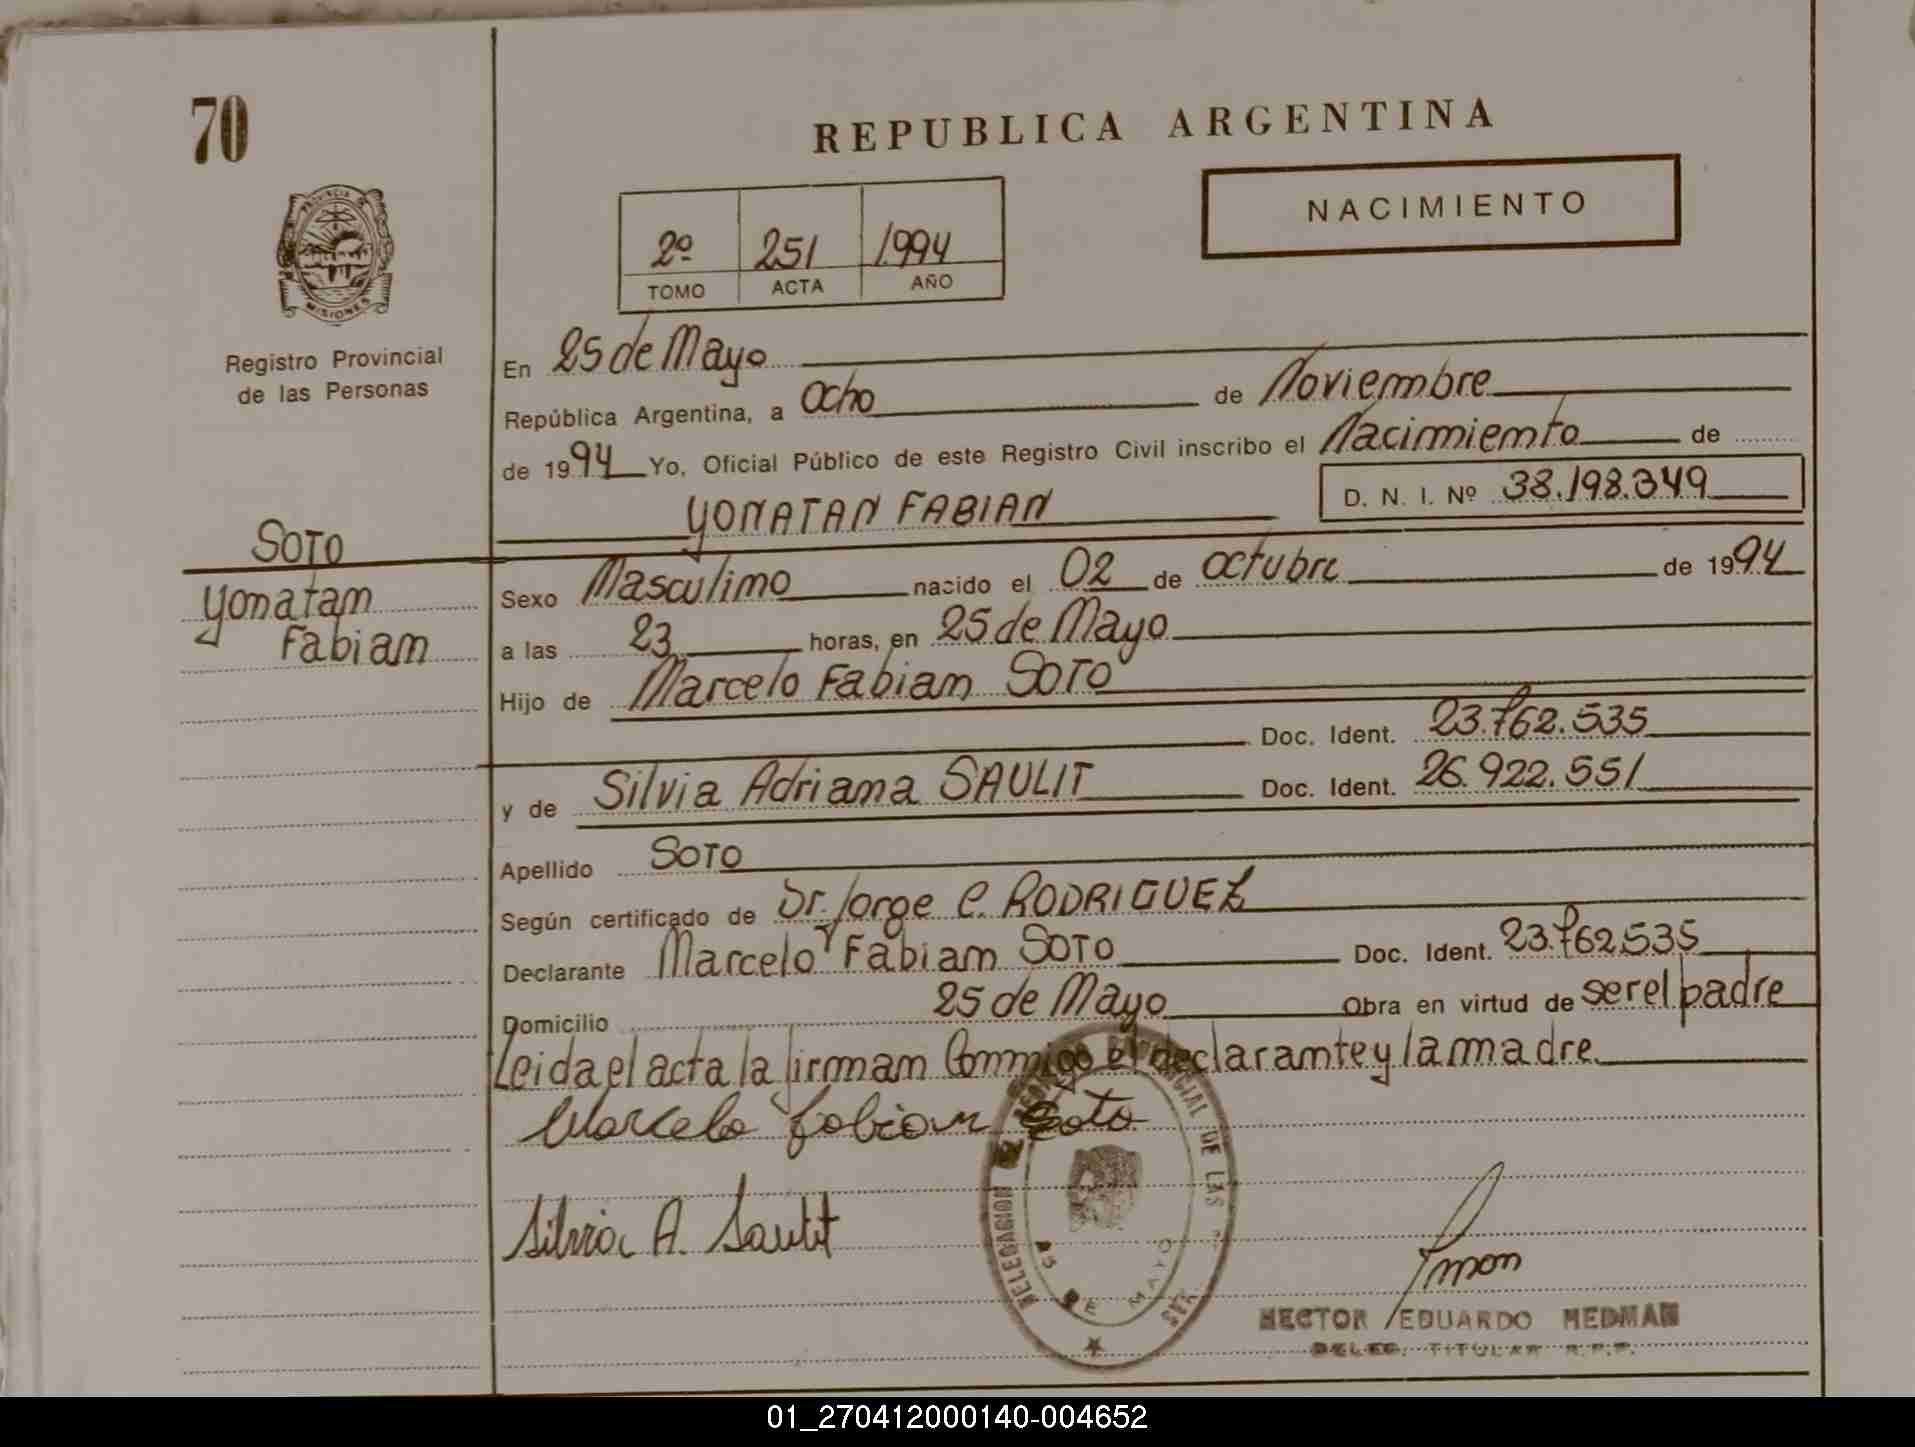 70
REPUBLICA ARGENTINA
NACIMIENTO
2º 251 1994
TOMO ACTA AÑO
PROVINCIA DE
MISIONES
Registro Provincial
de las Personas
En 25 de Mayo
República Argentina, a ocho de Noviembre
de 1994 Yo, Oficial Público de este Registro Civil inscribo el Nacimiento de
YONATAN FABIAN D. N. I. Nº 38.198.349
SOTO
Yonatan
Fabian
Sexo Masculino nacido el 02 de octubre de 1994
a las 23 horas, en 25 de Mayo
Hijo de Marcelo Fabian SOTO
Doc. Ident. 23.762.535
y de Silvia Adriana SAULIT Doc. Ident. 26.922.551
Apellido SOTO
Según certificado de Dr. Jorge C. RODRIGUEZ
Declarante Marcelo Fabian SOTO Doc. Ident. 23.762535
Domicilio 25 de Mayo Obra en virtud de ser el padre
Leida el acta la firman Conmigo el declarante y la madre
Marcelo fabian Soto
Silvia A. Saulit
DELEGACION REGISTRO PROVINCIAL DE LAS
25 DE MAYO
HECTOR EDUARDO HEDMAN
DELEG. TITULAR R.P.P.
01_270412000140-004652